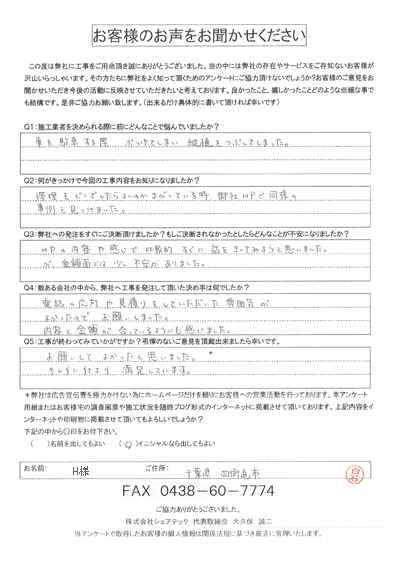 お客様のお声をお聞かせください
この度は弊社に工事をご用命頂き誠にありがとうございました。世の中には弊社の存在やサービスをご存知ないお客様が
沢山いらっしゃいます。その方たちに弊社をよく知って頂くためのアンケートにご協力頂けないでしょうか?お客様のご意見をお
聞かせいただき今後の活動に反映させていただきたいと考えております。良かったこと、嬉しかったことどのような些細な事で
も結構です。是非ご協力お願い致します。(出来るだけ具体的に書いて頂ければ幸いです)
Q1:施工業者を決められる際に前にどんなことで悩んでいましたか?
車を駐車する際 ぶつけてしまい 縦樋をつぶしてしまった。
Q2:何がきっかけで今回の工事内容をお知りになりましたか?
修理をどこでしたらよいのかさがしている時、御社HPで同様の
事例を見つけました。
Q3:弊社への発注をすぐにご決断頂けましたか?もしご決断されなかったとしたらどんなことが不安になりましたか?
HPの内容や感じで比較的すぐに話をきいてみようと思いました。
が、金額面では少し不安がありました。
Q4:数ある会社の中から、弊社へ工事を発注して頂いた決め手は何でしたか?
電話の応対や見積りをしていただいた雰囲気が
よかったのでお願いしました。
内容と金額が合っているようにも感じました。
Q5:工事が終わってみていかがですか?忌憚のないご意見を頂戴出来ましたら幸いです。
お願いしてよかったと思いました。
キレイに仕上り 満足しています。
*弊社は広告宣伝費を極力かけない為にホームページだけを頼りにお客様への営業活動を行っております。本アンケート
用紙またはお客様宅の調査風景や施工状況を随時ブログ形式のインターネットに掲載させて頂いております。上記内容をイ
ンターネットや印刷物に掲載させて頂いてもよろしいでしょうか?
下記の中から〇印をお付下さい。
( )名前を出してもよい (○)イニシャルなら出してもよい
お名前: H様 ご住所: 千葉県 四街道市
白石
FAX 0438-60-7774
ご協力ありがとうございました。
株式会社シェアテック 代表取締役 大久保 誠二
当アンケートで取得したお客様の個人情報は関係法規に基づき厳正に管理いたします。